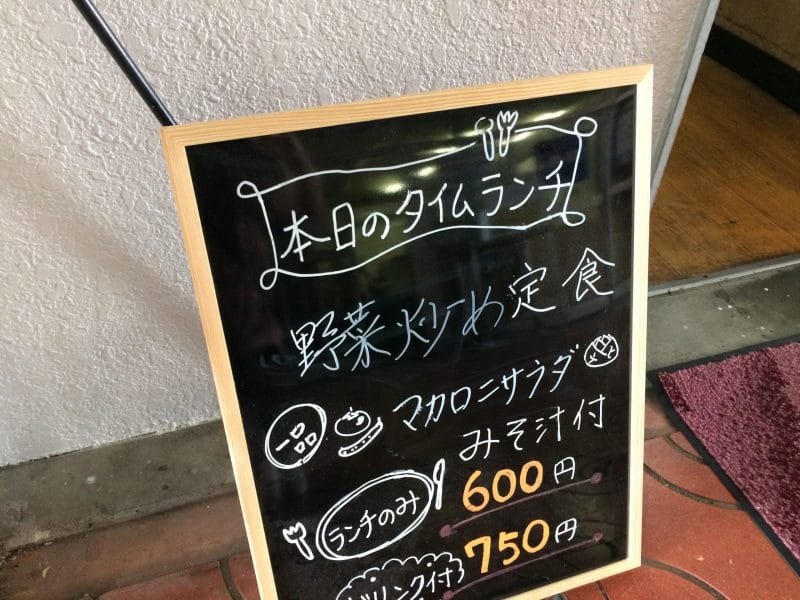 本日のタイムランチ
野菜炒め定食
一品 マカロニサラダ
みそ汁付
ランチのみ 600円
ドリンク付 750円